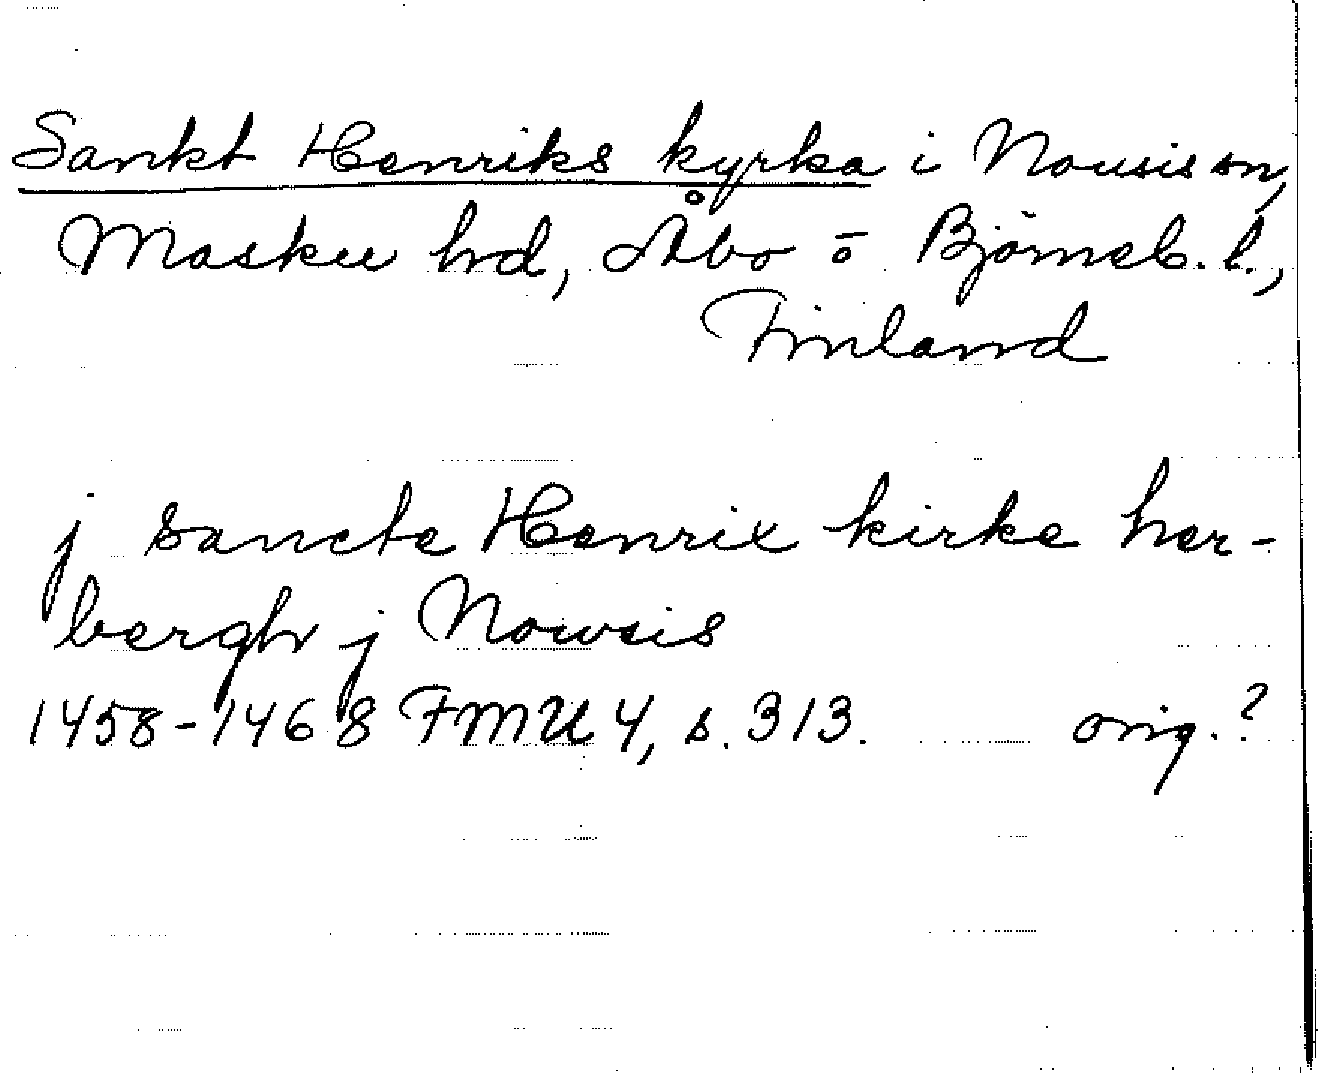 Sankt Henriks kyrka i Nousis sn,
Masku hd, Åbo o Björneb. l.,
Finland
j sancte Henrix kirke her-
bergh j Nowsis
1458-1468 FMU 4, s. 313. orig.?